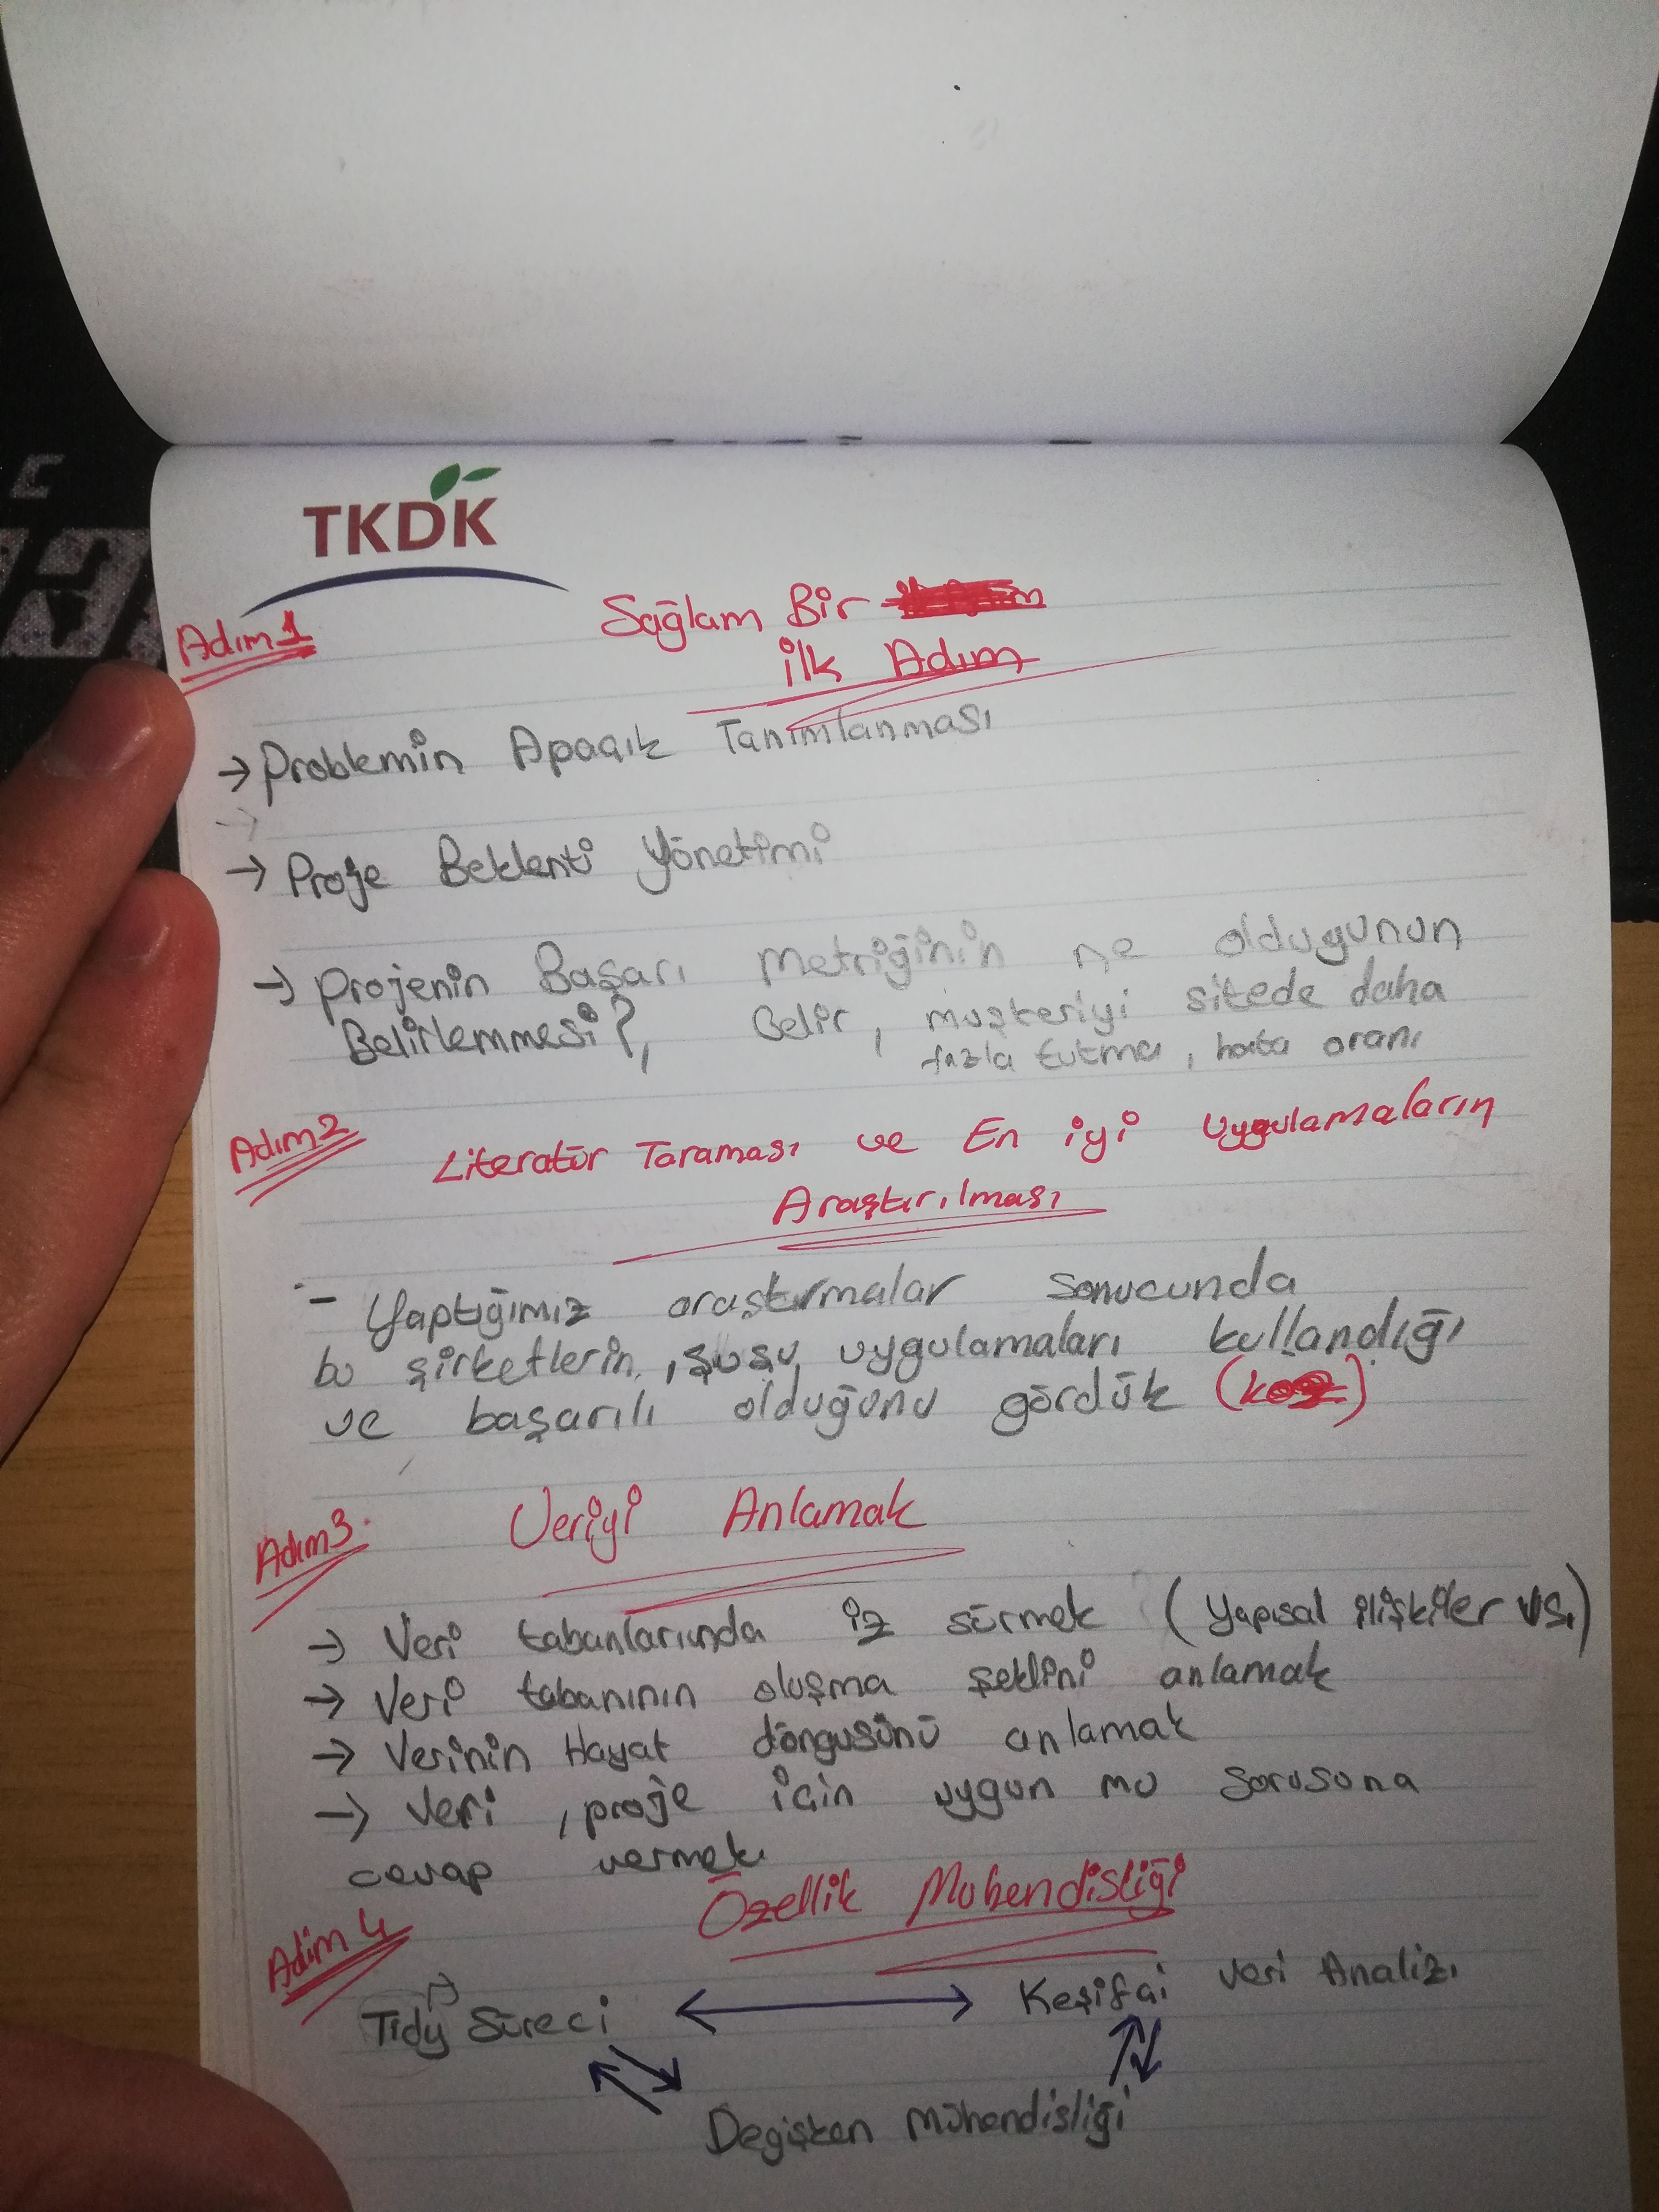 TKDK
Adım 1
Sağlam Bir
ilk Adım
→ Problemin Apaçık Tanımlanması
→ Proje Beklenti Yönetimi
→ Projenin Başarı Metriğinin ne olduğunun
Belirlemmesi?, Gelir, müşteriyi sitede daha
fazla tutma, hata oranı
Adım 2
Literatür Taraması ve En iyi Uygulamaların
Araştırılması
- Yaptığımız araştırmalar sonucunda
bu şirketlerin, şuşu uygulamaları kullandığı
ve başarılı olduğunu gördük
Adım 3
Veriyi Anlamak
→ Veri tabanlarında iz sürmek (yapısal ilişkiler vs.)
→ Veri tabanının oluşma şeklini anlamak
→ Verinin Hayat döngusünü anlamak
→ Veri, proje için uygun mu sorusuna
cevap vermek
Özellik Mühendisliği
Adim 4
Tidy Süreci ↔ Keşifçi Veri Analizi
Değişken Mühendisliği